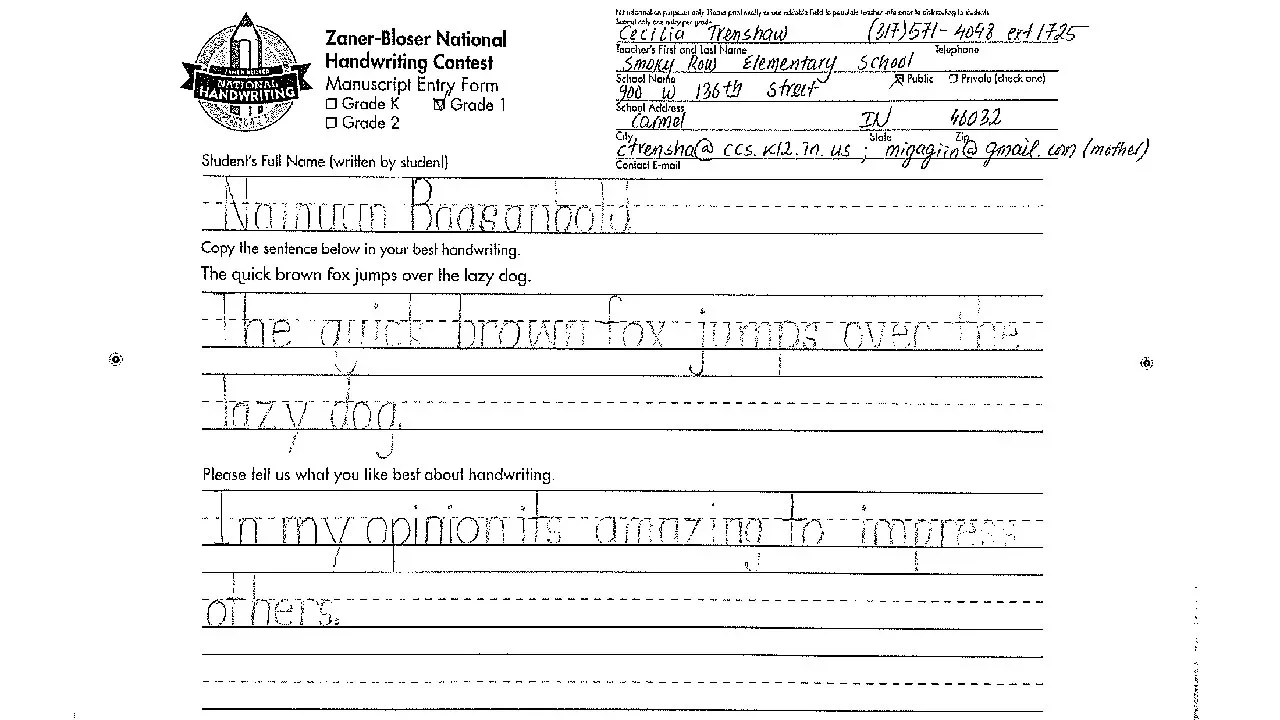 Cecilia Trenshaw (317) 571-4098 ext 1725
Teacher's First and Last Name Telephone
Smoky Row Elementary School
School Name Public Private (check one)
900 W 136th Street
School Address
Carmel IN 46032
City State Zip
ctrensha@ccs.k12.in.us ; migagiin@gmail.com (mother)
Contact E-mail
ZANER-BLOSER
NATIONAL
HANDWRITING
Zaner-Bloser National
Handwriting Contest
Manuscript Entry Form
Grade K Grade 1
Grade 2
Student's Full Name (written by student)
Nainuam Baasanbold
Copy the sentence below in your best handwriting.
The quick brown fox jumps over the lazy dog.
The quick brown fox jumps over the
lazy dog.
Please tell us what you like best about handwriting.
In my opinion it's amazing to impress
others.